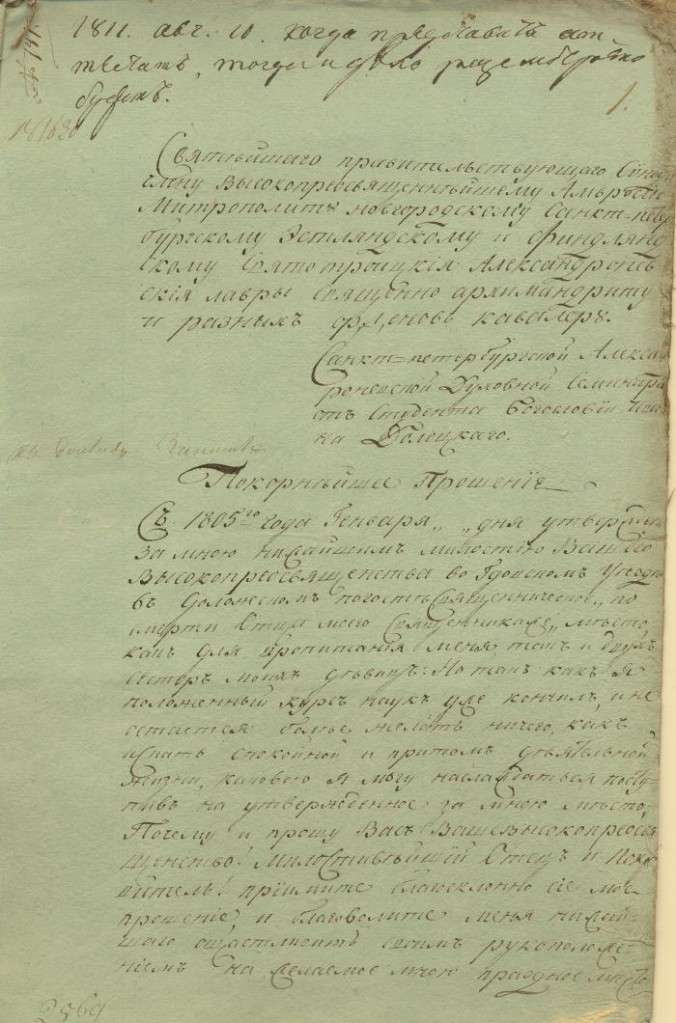 1811. авг. 10. когда представитъ ат
тестатъ, тогда и дѣло
будетъ.
1.
Святѣйшаго правительствующаго Сѵно
члену Высокопреосвященнѣйшему Амвросію
Митрополиту новгородскому Санкт=пете
бургскому Эстляндскому и Финлянд
скому Святотроицкія Александроне
скія лавры священно архимандриту
и разныхъ орденовъ кавалеру.
Санкт=петербургской Алекса
роневской Духовной Семинарі
студента богословіи
на Болецкаго.
Покорнѣйшее Прошеніе
Съ 1805го года Генваря „ „ дня утвержд
за мною нижайшимъ милостію Вашего
Высокопреосвященства во Гдовскомъ Уѣздѣ
въ Доложскомъ погостѣ Священническое „ по
смерти Отца моего Священника „ мѣсто
какъ для пропитанія меня такъ и двухъ
сестеръ моихъ дѣвицъ. Но такъ какъ я
положенный курсъ наукъ уже кончилъ, и не
остается болѣе желать ничего, какъ
искать спокойной и притомъ дѣятельной
жизни, каковою я могу наслаждаться посту
пивъ на утвержденное за мною мѣсто;
Почему и прошу Васъ Вашевысокопреосвя
щенство! Милостивѣйшій Отецъ и Покро
витель! пріимите благосклонно сіе мое
прошеніе, и благоволите меня нижай
шаго осчастливить своимъ рукоположе
ніемъ на желаемое мною праздное мѣсто
2569